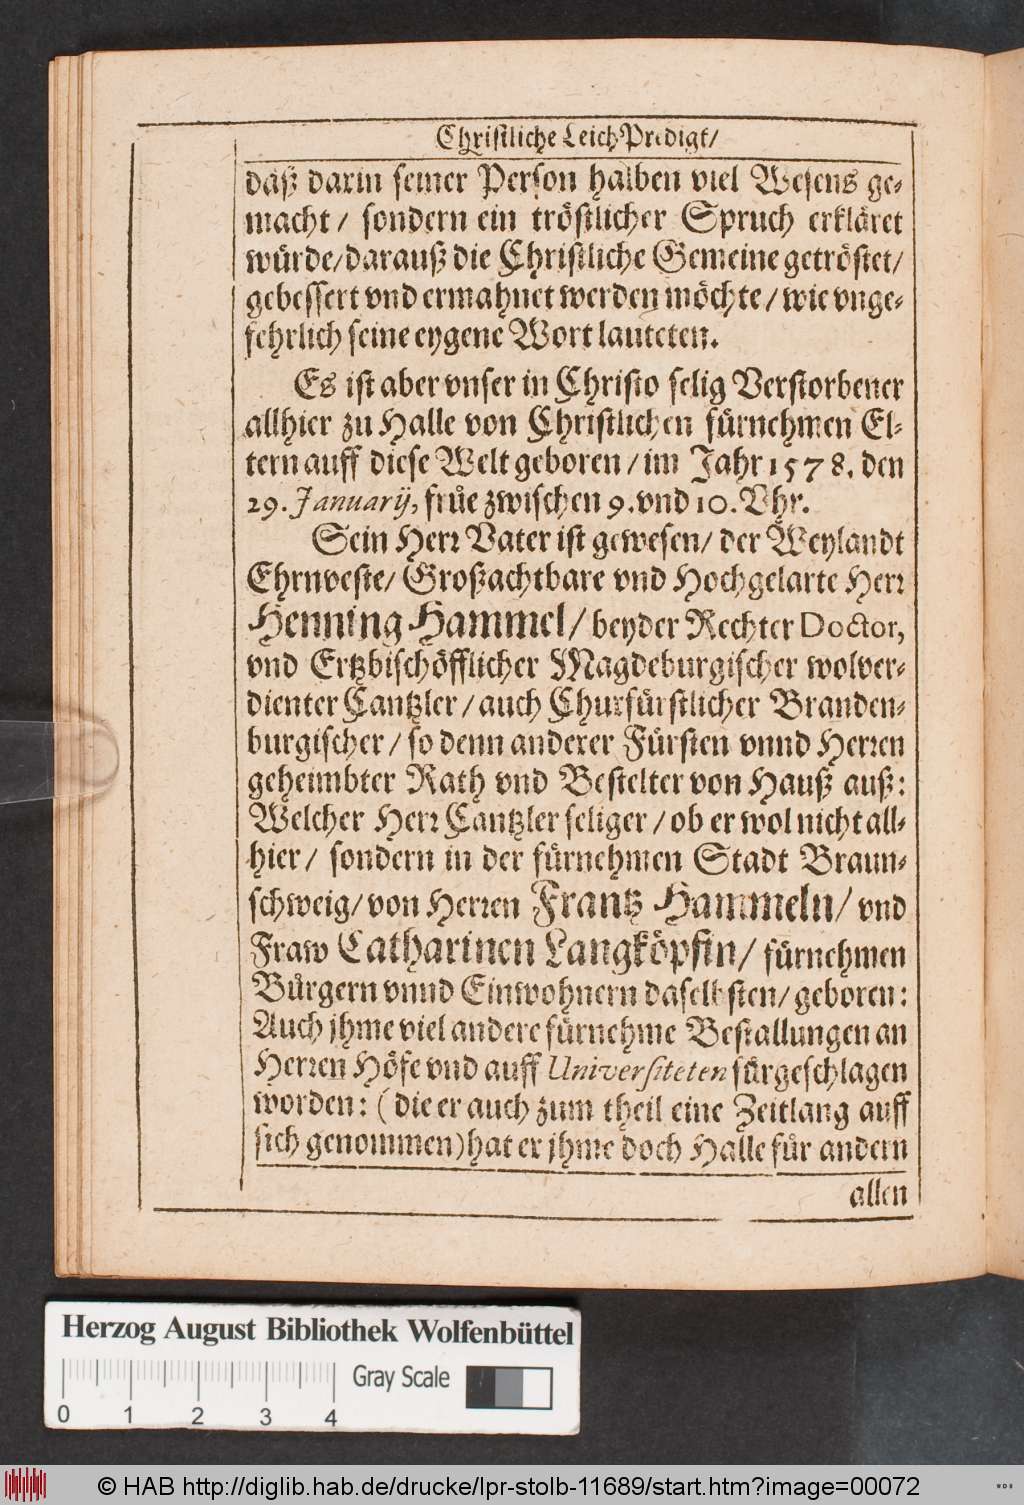 Christliche LeichPredigt/
daß darin seiner Person halben viel Wesens ge-
macht/ sondern ein tröstlicher Spruch erkläret
würde/darauß die Christliche Gemeine getröstet/
gebessert vnd ermahnet werden möchte/ wie vnge-
fehrlich seine eygene Wort lauteten.
Es ist aber vnser in Christo selig Verstorbener
allhier zu Halle von Christlichen fürnehmen El-
tern auff diese Welt geboren/ im Jahr 1578. den
29. Januarij, früe zwischen 9. vnd 10. Vhr.
Sein Herr Vater ist gewesen/ der Weylandt
Ehrnveste/ Großachtbare vnd Hochgelarte Herr
Henning Hammel/ beyder Rechter Doctor,
vnd Ertzbischöfflicher Magdeburgischer wolver-
dienter Cantzler/ auch Churfürstlicher Branden-
burgischer/ so denn anderer Fürsten vnnd Herren
geheimbter Rath vnd Bestelter von Hauß auß:
Welcher Herr Cantzler seliger/ ob er wol nicht all-
hier/ sondern in der fürnehmen Stadt Braun-
schweig/ von Herren Frantz Hammeln/ vnd
Fraw Catharinen Langköpfin/ fürnehmen
Bürgern vnnd Einwohnern daselbsten/ geboren:
Auch jhme viel andere fürnehme Bestallungen an
Herren Höfe vnd auff Universiteten fürgeschlagen
worden: (die er auch zum theil eine Zeitlang auff
sich genommen) hat er jhme doch Halle für andern
allen
Herzog August Bibliothek Wolfenbüttel
Gray Scale
0 1 2 3 4
© HAB http://diglib.hab.de/drucke/lpr-stolb-11689/start.htm?image=00072